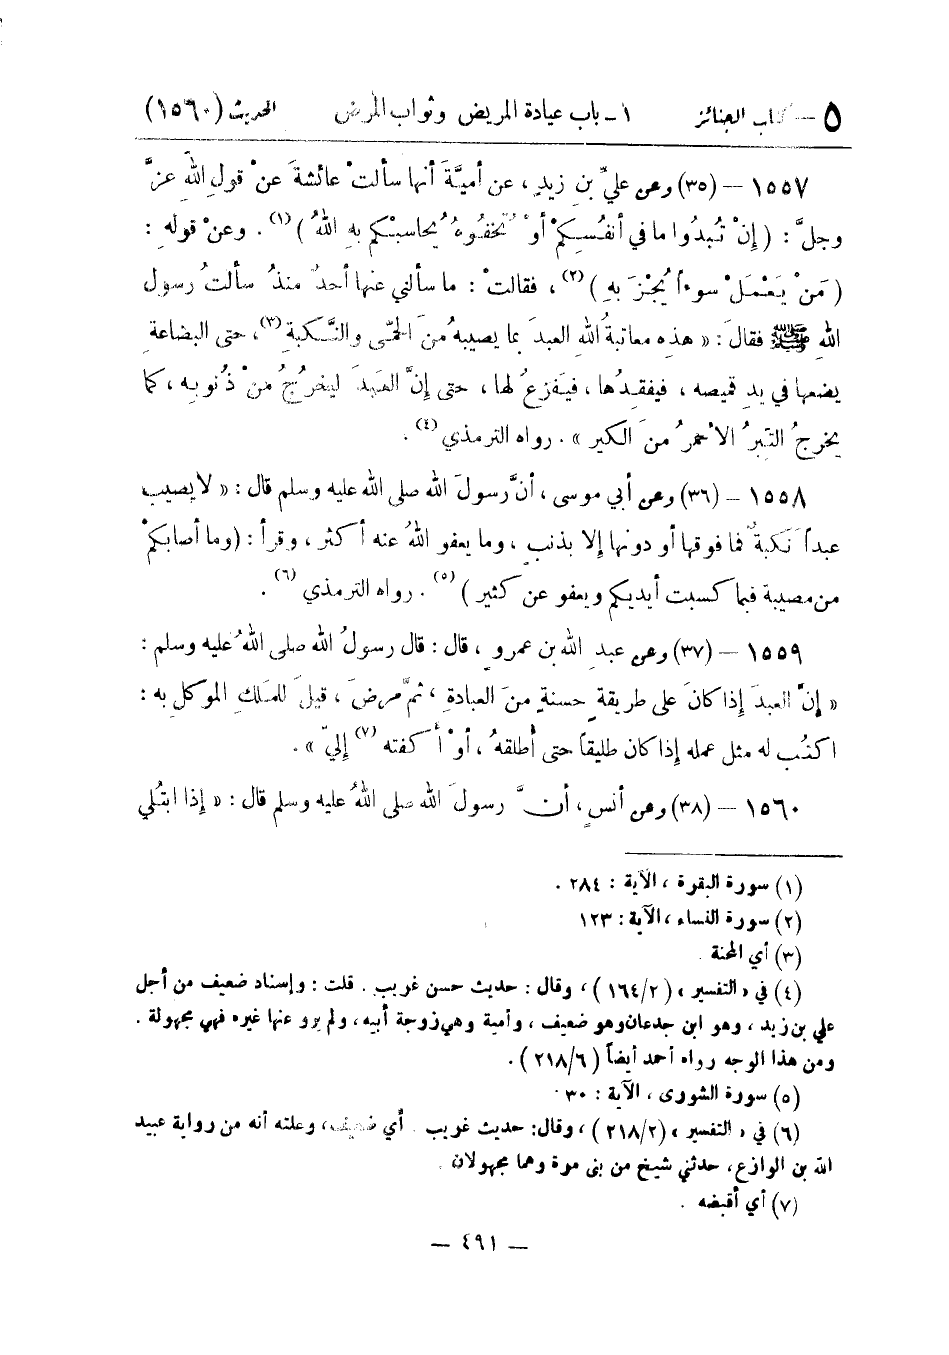 ٥ – كتاب الجنائز ١ – باب عيادة المريض وثواب المرض الحديث (١٥٦٠)
١٥٥٧ – (٣٥) وعن عليِّ بنِ زيدٍ، عن أميَّةَ أنها سألتْ عائشةَ عنْ قولِ اللهِ عزَّ
وجلَّ : ( إنْ تُبدُوا ما في أنفُسِكُمْ أوْ تُخفُوهُ يُحاسبْكم بهِ اللهُ )(١) . وعنْ قولهِ :
( مَنْ يَعْمَلْ سوءاً يُجْزَ بهِ )(٢) ، فقالتْ : ما سألني عنها أحدٌ منذُ سألتُ رسول
اللهِ ﷺ فقالَ : « هذه معاتبةُ اللهِ العبدَ بما يصيبهُ منَ الحمّى والنَّكبةِ(٣)، حتى البضاعةِ
يضعها في يدِ قميصه ، فيفقدُها ، فيَفزعُ لها ، حتى إنَّ العبدَ ليخرُجُ منْ ذُنوبه ، كما
يخرجُ التِّبرُ الأحمرُ منَ الكير » . رواه الترمذي(٤) .
١٥٥٨ – (٣٦) وعن أبي موسى ، أنَّ رسولَ الله صلى الله عليه وسلم قال : « لا يصيب
عبداً نَكبةٌ فما فوقها أو دونها إلا بذنبٍ ، وما يعفو اللهُ عنه أكثر ، وقرأ : (وما أصابكمْ
من مصيبة فبما كسبت أيديكم ويعفو عن كثير )(٥) . رواه الترمذي(٦) .
١٥٥٩ – (٣٧) وعن عبدِ الله بن عمروٍ ، قال : قال رسولُ الله صلى اللهُ عليه وسلم :
« إنَّ العبدَ إذا كانَ على طريقةٍ حسنةٍ منَ العبادةِ ، ثمَّ مرضَ ، قيلَ للمَلَكِ الموكل به :
اكتُب له مثل عمله إذا كان طليقاً حتى أُطلقهُ ، أوْ أَكفته(٧) إليّ » .
١٥٦٠ – (٣٨) وعن أنسٍ ، أنَّ رسولَ الله صلى اللهُ عليه وسلم قال : « إذا ابتُلي
(١) سورة البقرة ، الآية : ٢٨٤ .
(٢) سورة النساء ، الآية : ١٢٣
(٣) أي المحنة .
(٤) في « التفسير » (١٦٤/٢ ) ، وقال : حديث حسن غريب . قلت : وإسناد ضعيف من أجل
علي بن زيد ، وهو ابن جدعان وهو ضعيف ، وأمية وهي زوجة أبيه ، ولم يرو عنها غيره فهي مجهولة .
ومن هذا الوجه رواه أحمد أيضاً (٢١٨/٦ ) .
(٥) سورة الشورى ، الآية : ٣٠ .
(٦) في « التفسير » (٢١٨/٢ ) ، وقال: حديث غريب . أي ضعيف، وعلته أنه من رواية عبيد
الله بن الوازع، حدثني شيخ من بني مرة وهما مجهولان .
(٧) أي أقبضه .
– ٤٩١ –